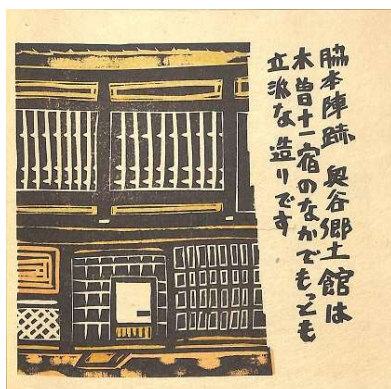 脇本陣跡 奥谷郷土館は
木曽十一宿のなかでもっとも
立派な造りです